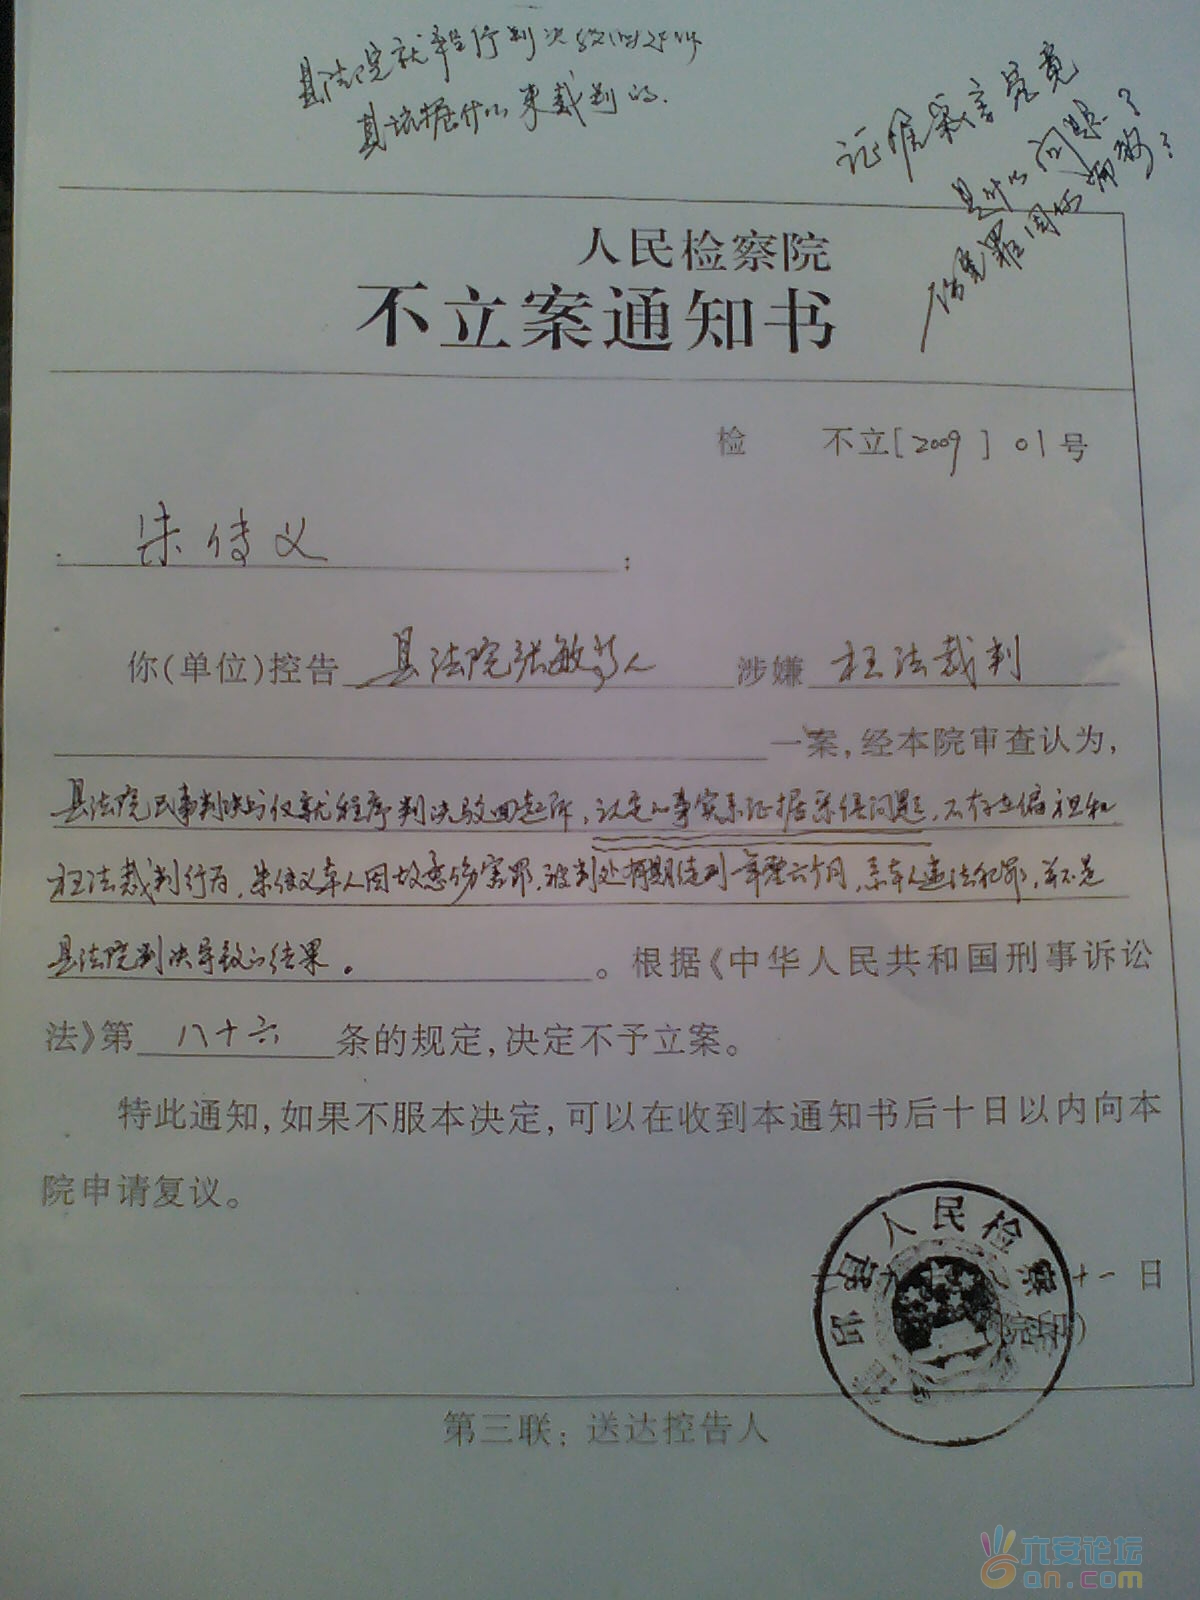 县法院就程序判决
其依据什么来裁判的.
证据采信究竟
是什么问题?
伤害罪因何而致?
人民检察院
不立案通知书
检 不立[2009]01号
朱传义:
你(单位)控告县法院张敏等人涉嫌枉法裁判
一案,经本院审查认为,
县法院民事判决书仅就程序判决驳回起诉,认定的事实系证据采信问题,不存在偏袒和
枉法裁判行为,朱传义本人因故意伤害罪,被判处有期徒刑一年零六个月,系本人违法犯罪,并不是
县法院判决导致的结果。。根据《中华人民共和国刑事诉讼
法》第八十六条的规定,决定不予立案。
特此通知,如果不服本决定,可以在收到本通知书后十日以内向本
院申请复议。
人民检察
十一日
(院印)
第三联:送达控告人
六安论坛
an.com